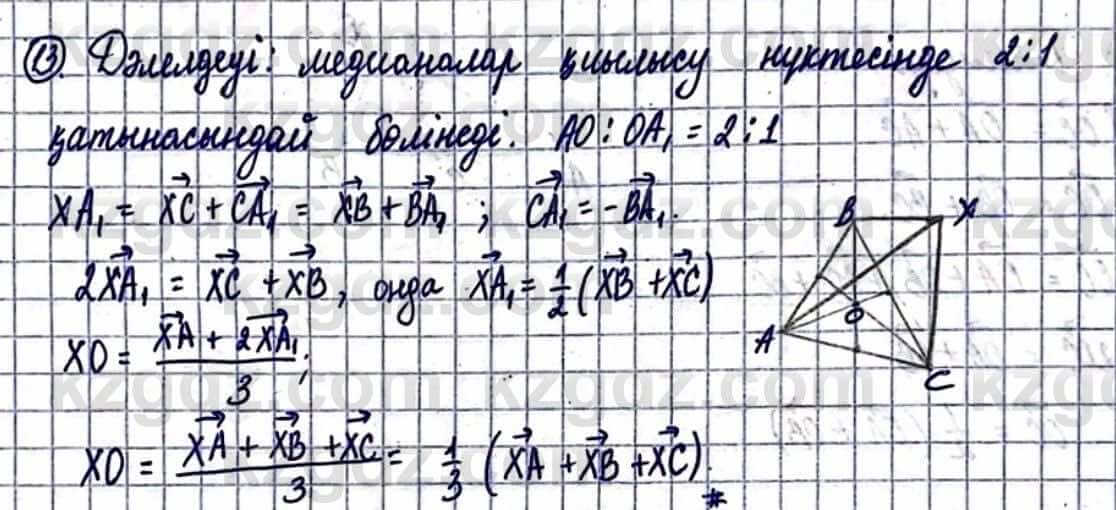 13. Дәлелдеуі: медианалар қиылысу нүктесінде 2:1
қатынасындай бөлінеді. AO : OA₁ = 2 : 1
XA₁ = XC⃗ + CA₁⃗ = XB⃗ + BA₁⃗ ; CA₁⃗ = -BA₁⃗.
2XA₁⃗ = XC⃗ + XB⃗, онда XA₁⃗ = 1/2 (XB⃗ + XC⃗)
XO = (XA⃗ + 2XA₁⃗)/3;
XO = (XA⃗ + XB⃗ + XC⃗)/3 = 1/3 (XA⃗ + XB⃗ + XC⃗). #
B X
O
A
C
kzgdz.com